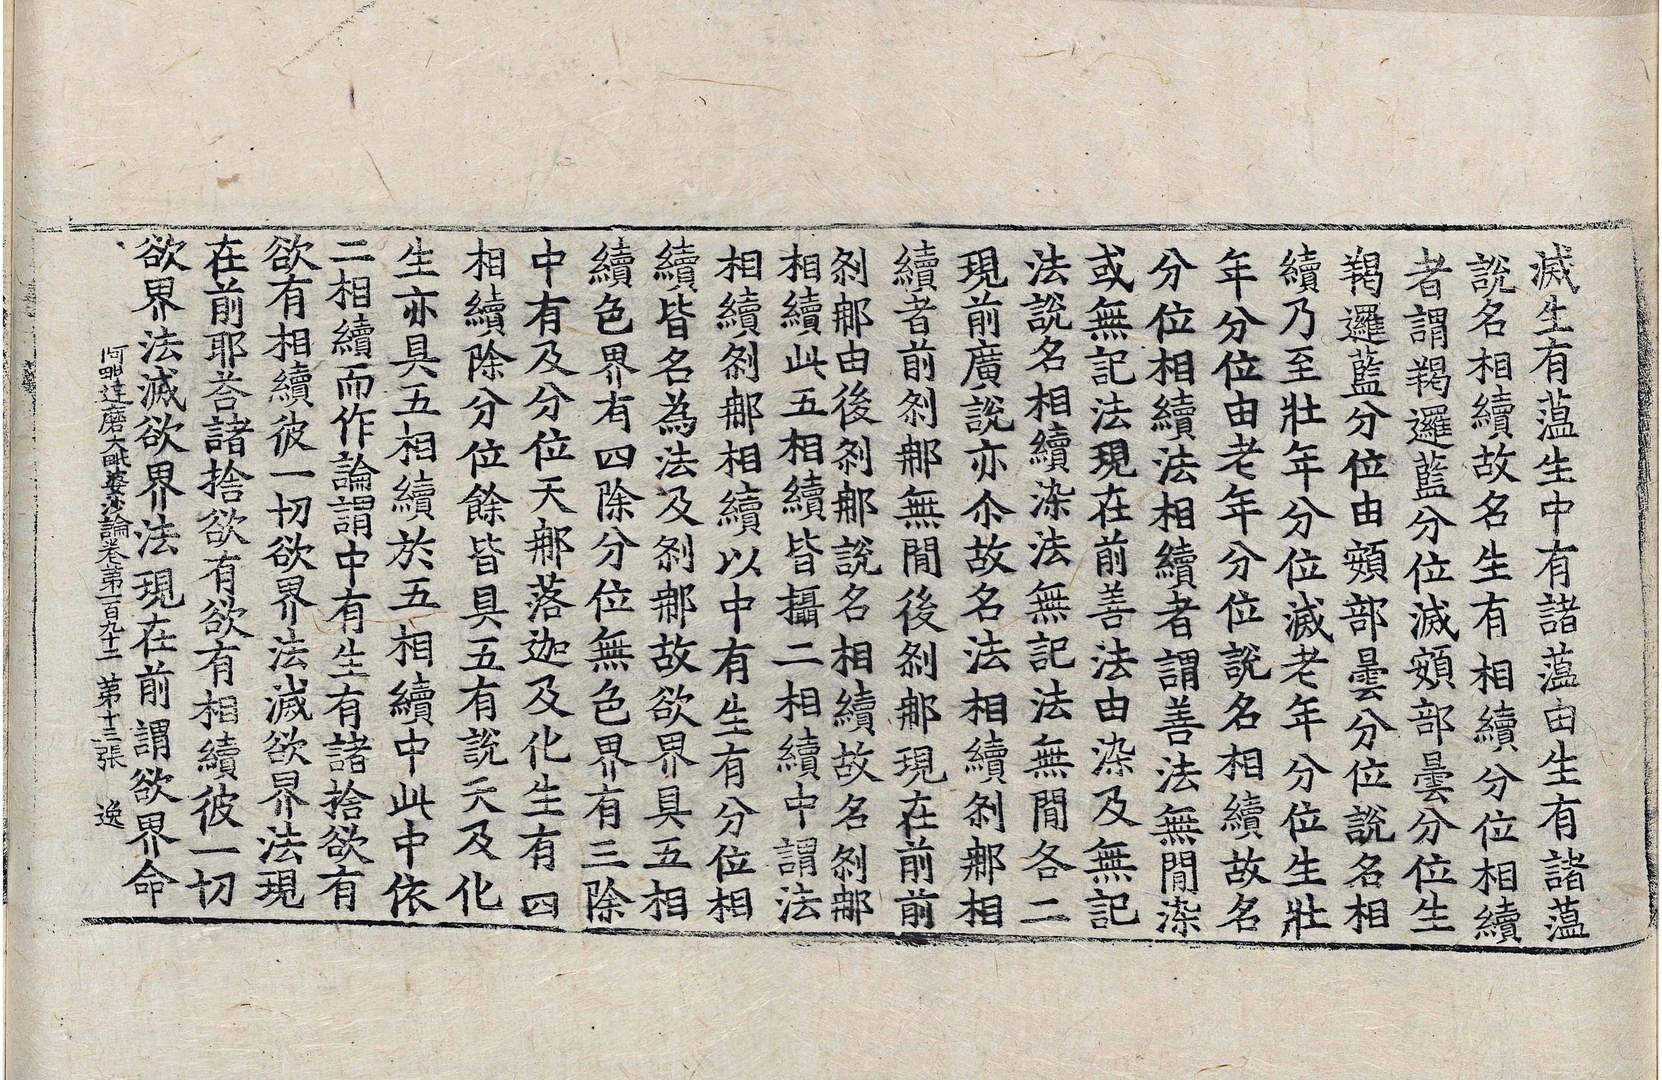 滅生有薀生中有諸薀由生有諸薀
說名相續故名生有相續分位相續
者謂羯邏藍分位滅頞部曇分位生
羯邏藍分位由頞部曇分位說名相
續乃至壯年分位滅老年分位生壯
年分位由老年分位說名相續故名
分位相續法相續者謂善法無閒染
或無記法現在前善法由染及無記
法說名相續染法無記法無閒各二
現前廣說亦尒故名法相續剎𨙻相
續者前剎𨙻無閒後剎𨙻現在前前
剎𨙻由後剎𨙻說名相續故名剎𨙻
相續此五相續皆攝二相續中謂法
相續剎𨙻相續以中有生有分位相
續皆名為法及剎𨙻故欲界具五相
續色界有四除分位無色界有三除
中有及分位天𨙻落迦及化生有四
相續除分位餘皆具五有說天及化
生亦具五相續於五相續中此中依
二相續而作論謂中有生有諸捨欲有
欲有相續彼一切欲界法滅欲界法現
在前耶荅諸捨欲有欲有相續彼一切
欲界法滅欲界法現在前謂欲界命
阿毗達磨大毗婆沙論卷第一百九十二 第十三張 逸